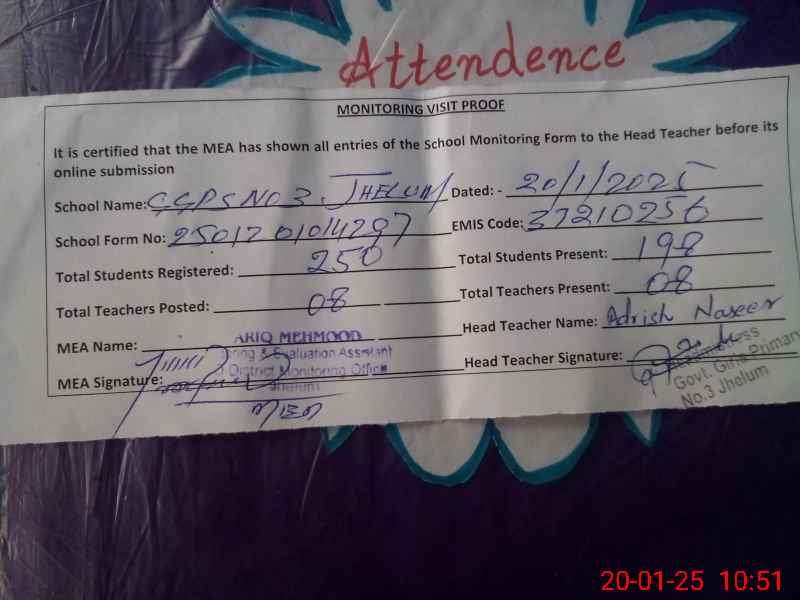 Attendence
MONITORING VISIT PROOF
It is certified that the MEA has shown all entries of the School Monitoring Form to the Head Teacher before its
online submission
School Name: GGPS NO 3. JHELUM Dated: - 20/1/2025
School Form No: 2501201014297 EMIS Code: 37210256
Total Students Registered: 250 Total Students Present: 198
Total Teachers Posted: 08 Total Teachers Present: 08
MEA Name: ARIQ MEHMOOD Head Teacher Name: Adrish Naseer
ring & Evaluation Assistant
District Monitoring Office
Jhelum
MEA Signature: Head Teacher Signature:
MEA
Govt. Girls Primary
No.3 Jhelum
20-01-25 10:51